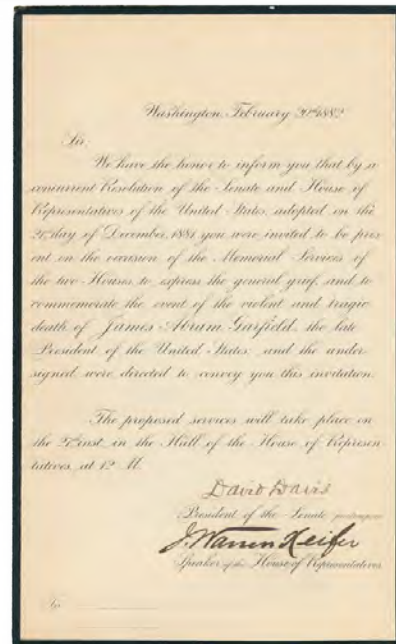 Washington, February 20th 1882
Sir:
We have the honor to inform you that by a
concurrent Resolution of the Senate and House of
Representatives of the United States, adopted on the
21st day of December, 1881, you were invited to be pres
ent on the occasion of the Memorial Services of
the two Houses to express the general grief, and to
commemorate the event of the violent and tragic
death of James Abram Garfield, the late
President of the United States; and the under
signed were directed to convey you this invitation.
The proposed services will take place on
the 27th inst. in the Hall of the House of Represen
tatives, at 12 M.
David Davis
President of the Senate pro tempore
J. Warren Keifer
Speaker of the House of Representatives
To